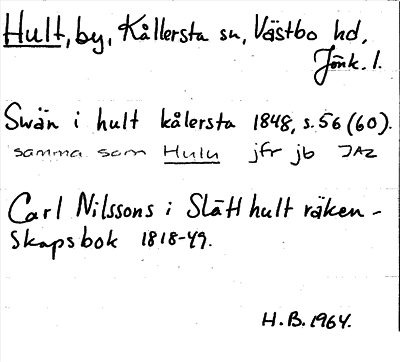 Hult, by, Kållersta sn, Västbo hd,
Jönk. l.
Swän i hult kålersta 1848, s. 56 (60).
samma som Hulu jfr jb JAZ
Carl Nilssons i Slätthult räken-
skapsbok 1818-49.
H.B. 1964.